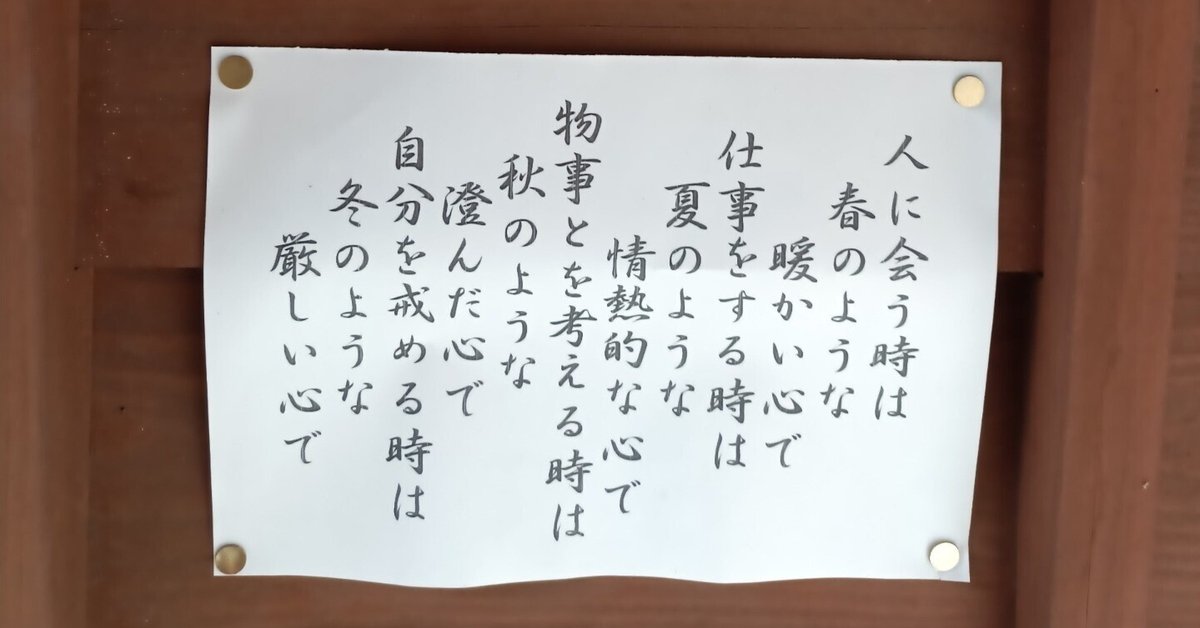 人に会う時は
春のような
暖かい心で
仕事をする時は
夏のような
情熱的な心で
物事とを考える時は
秋のような
澄んだ心で
自分を戒める時は
冬のような
厳しい心で